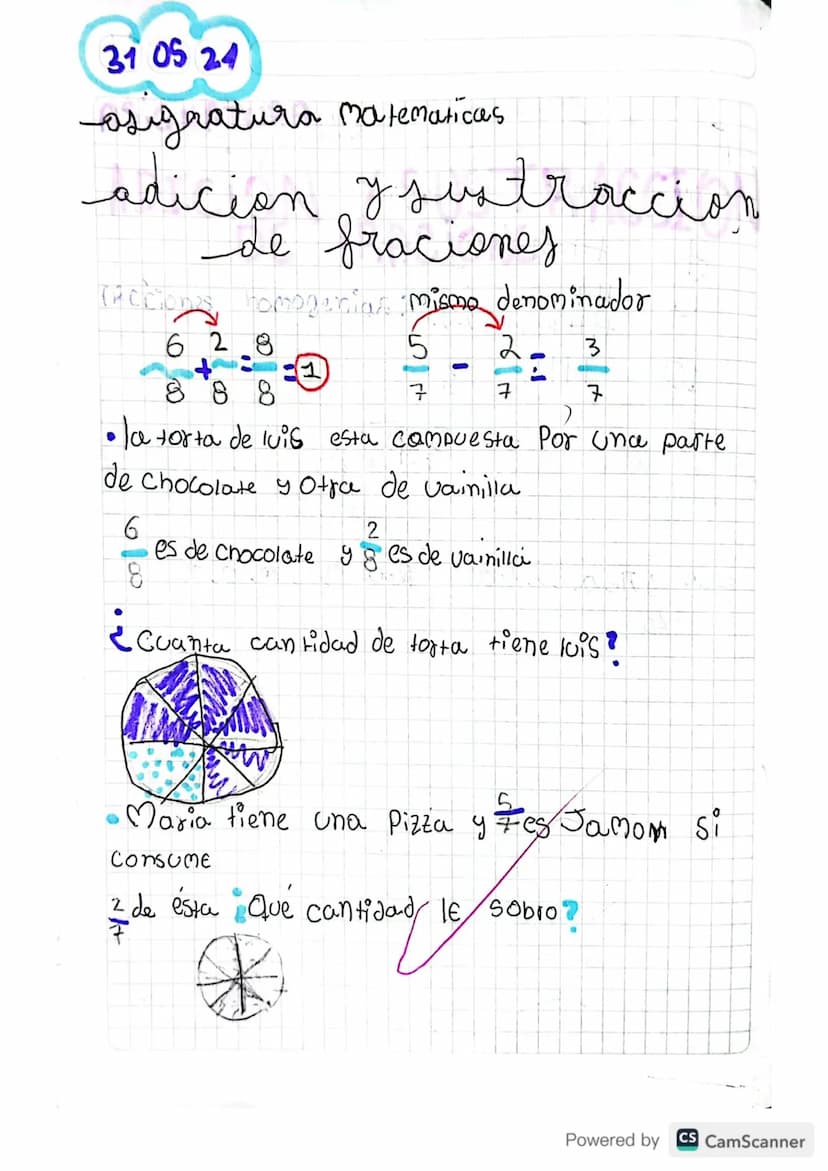 31 05 21
asignatura matematicas
adicion y sustraccion
de fraciones
homogenias : mismo denominador
6/8 + 2/8 = 8/8 = 1    5/7 - 2/7 = 3/7
• la torta de luis esta compuesta Por una parte
de chocolate y otra de vainilla
6/8 es de chocolate y 2/8 es de vainilla
¿Cuanta cantidad de torta tiene luis?
• Maria tiene una Pizza y 5/7 es Jamon si
consume
2/7 de ésta ¿Qué cantidad le sobro?
Powered by CS CamScanner